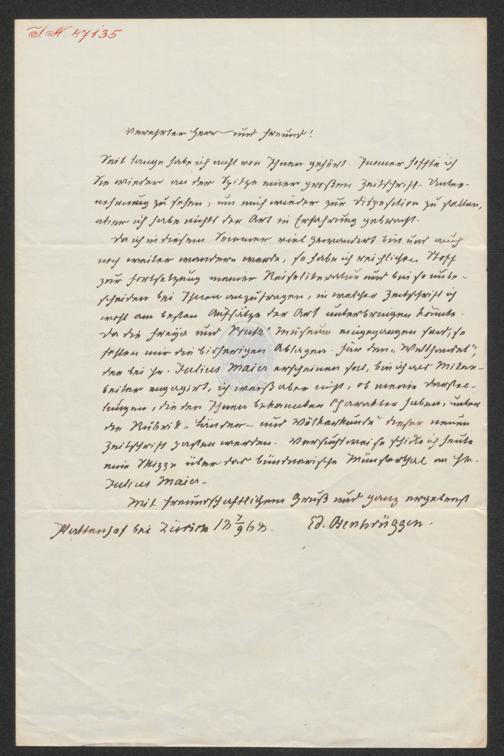 I. N. 47135
Verehrter Herr und Freund!
Seit lange habe ich nicht von Ihnen gehört. Immer hoffte ich
Sie wieder an der Spitze einer großen Zeitschrift-Unter-
nehmung zu sehen, um mich wieder zur Disposition zu stellen,
aber ich habe nichts der Art in Erfahrung gebracht.
Da ich in diesem Sommer viel gewandert bin und auch
noch weiter wandern werde, so habe ich reichlichen Stoff
zur Fortsetzung meiner Reiseliteratur und bin so unbe-
scheiden bei Ihnen anzufragen, in welcher Zeitschrift ich
wohl am besten Aufsätze der Art unterbringen könnte.
Da die Freya und Prutz' Museum eingegangen sind, so
fehlen mir die bisherigen Ablagen. Für den "Welthandel",
der bei Hr. Julius Maier erscheinen soll, bin ich als Mitar-
beiter engagirt, ich weiß aber nicht, ob meine Darstel-
lungen, die den Ihnen bekannten Charakter haben, unter
die Rubrik "Länder- und Völkerkunde" dieser neuen
Zeitschrift passen werden. Versuchsweise schicke ich heute
eine Skizze über das bündnerische Münsterthal an Hr.
Julius Maier.
Mit freundschaftlichem Gruß und ganz ergebenst
bei Zürich Ed. Osenbrüggen.